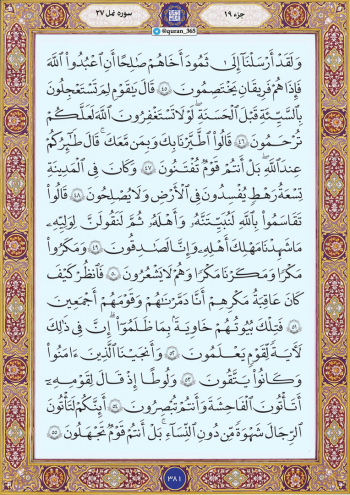 جزء ۱۹
@quran_365
سوره نمل ۲۷
وَلَقَدْ أَرْسَلْنَآ إِلَىٰ ثَمُودَ أَخَاهُمْ صَٰلِحًا أَنِ ٱعْبُدُوا۟ ٱللَّهَ
فَإِذَا هُمْ فَرِيقَانِ يَخْتَصِمُونَ ۝٤٥ قَالَ يَٰقَوْمِ لِمَ تَسْتَعْجِلُونَ
بِٱلسَّيِّئَةِ قَبْلَ ٱلْحَسَنَةِ ۖ لَوْلَا تَسْتَغْفِرُونَ ٱللَّهَ لَعَلَّكُمْ
تُرْحَمُونَ ۝٤٦ قَالُوا۟ ٱطَّيَّرْنَا بِكَ وَبِمَن مَّعَكَ ۚ قَالَ طَٰٓئِرُكُمْ
عِندَ ٱللَّهِ ۖ بَلْ أَنتُمْ قَوْمٌ تُفْتَنُونَ ۝٤٧ وَكَانَ فِى ٱلْمَدِينَةِ
تِسْعَةُ رَهْطٍ يُفْسِدُونَ فِى ٱلْأَرْضِ وَلَا يُصْلِحُونَ ۝٤٨ قَالُوا۟
تَقَاسَمُوا۟ بِٱللَّهِ لَنُبَيِّتَنَّهُۥ وَأَهْلَهُۥ ثُمَّ لَنَقُولَنَّ لِوَلِيِّهِۦ
مَا شَهِدْنَا مَهْلِكَ أَهْلِهِۦ وَإِنَّا لَصَٰدِقُونَ ۝٤٩ وَمَكَرُوا۟
مَكْرًا وَمَكَرْنَا مَكْرًا وَهُمْ لَا يَشْعُرُونَ ۝٥٠ فَٱنظُرْ كَيْفَ
كَانَ عَٰقِبَةُ مَكْرِهِمْ أَنَّا دَمَّرْنَٰهُمْ وَقَوْمَهُمْ أَجْمَعِينَ
۝٥١ فَتِلْكَ بُيُوتُهُمْ خَاوِيَةًۢ بِمَا ظَلَمُوٓا۟ ۗ إِنَّ فِى ذَٰلِكَ
لَءَايَةً لِّقَوْمٍ يَعْلَمُونَ ۝٥٢ وَأَنجَيْنَا ٱلَّذِينَ ءَامَنُوا۟
وَكَانُوا۟ يَتَّقُونَ ۝٥٣ وَلُوطًا إِذْ قَالَ لِقَوْمِهِۦٓ
أَتَأْتُونَ ٱلْفَٰحِشَةَ وَأَنتُمْ تُبْصِرُونَ ۝٥٤ أَئِنَّكُمْ لَتَأْتُونَ
ٱلرِّجَالَ شَهْوَةً مِّن دُونِ ٱلنِّسَآءِ ۚ بَلْ أَنتُمْ قَوْمٌ تَجْهَلُونَ ۝٥٥
۳۸۱